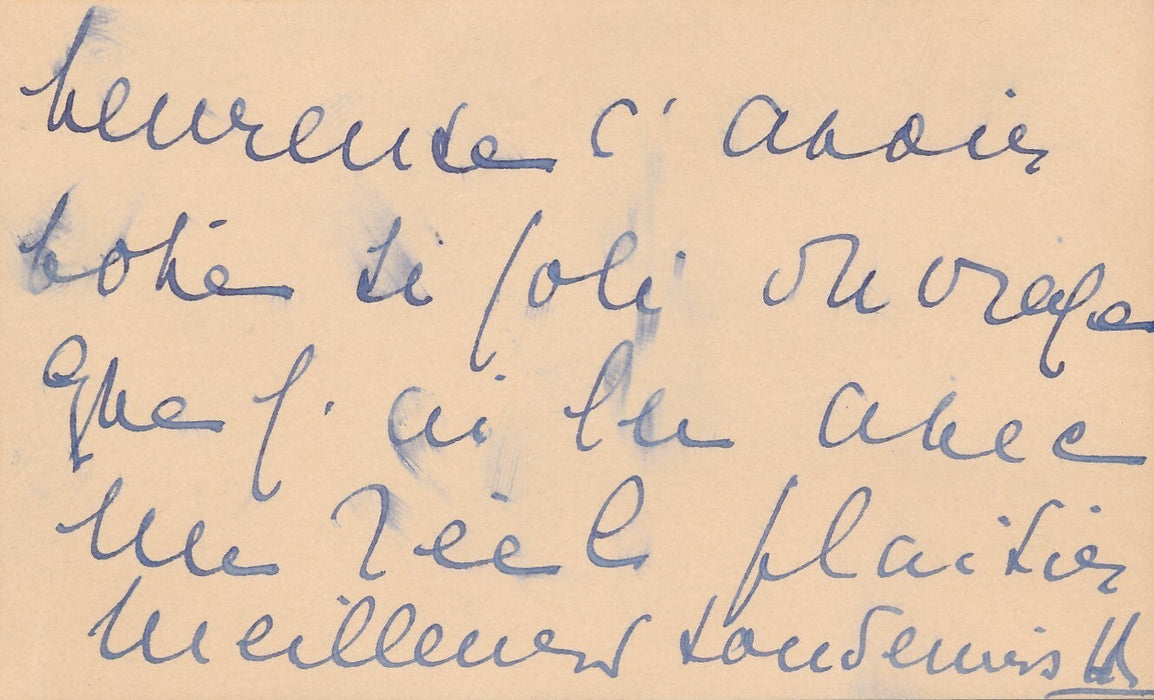 heureuse d'avoir
votre si joli ouvrage
que j'ai lu avec
un réel plaisir
Meilleurs souvenirs